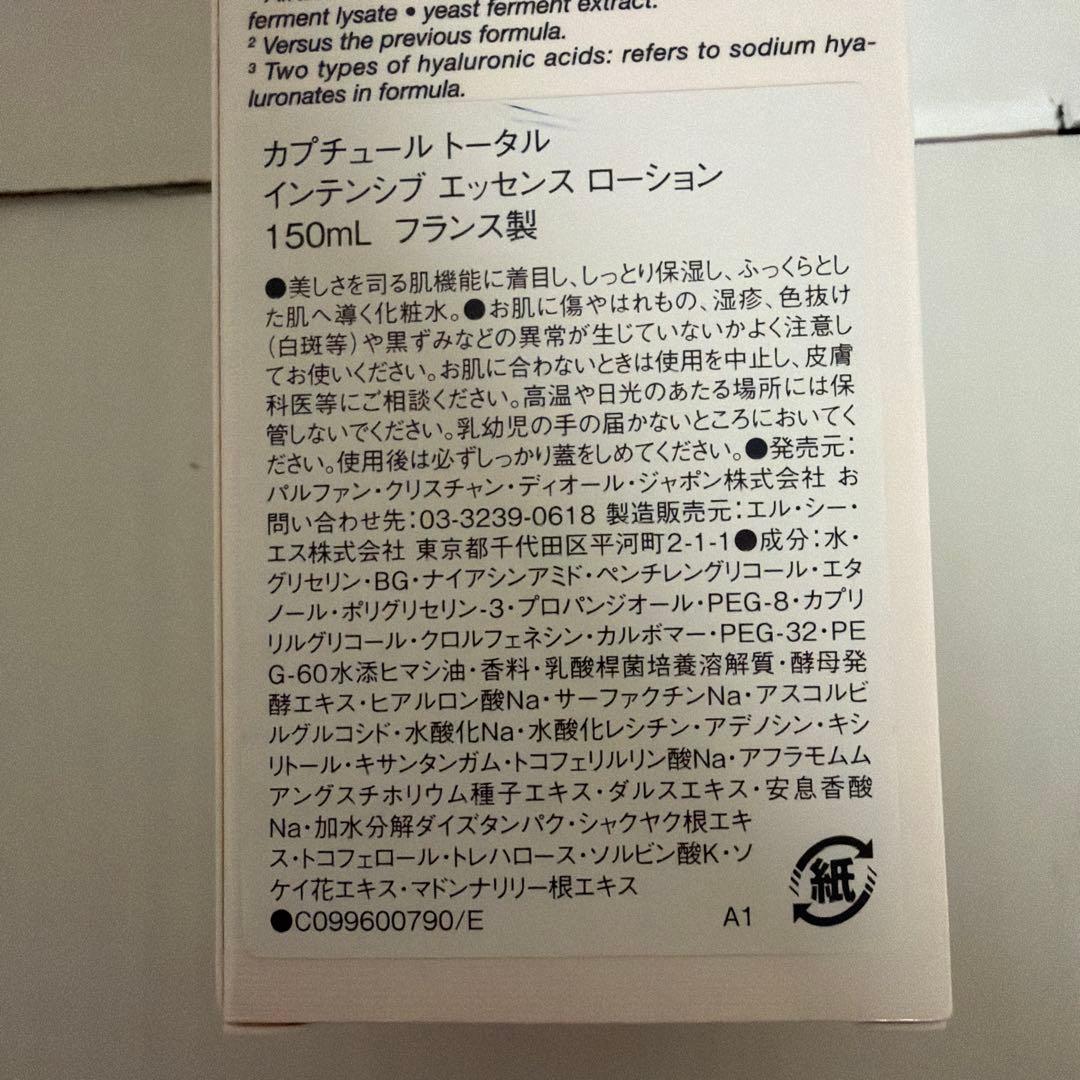 ferment lysate • yeast ferment extract.
² Versus the previous formula.
³ Two types of hyaluronic acids: refers to sodium hya-
luronates in formula.
カプチュール トータル
インテンシブ エッセンス ローション
150mL フランス製
●美しさを司る肌機能に着目し、しっとり保湿し、ふっくらとし
た肌へ導く化粧水。●お肌に傷やはれもの、湿疹、色抜け
(白斑等)や黒ずみなどの異常が生じていないかよく注意し
てお使いください。お肌に合わないときは使用を中止し、皮膚
科医等にご相談ください。高温や日光のあたる場所には保
管しないでください。乳幼児の手の届かないところにおいてく
ださい。使用後は必ずしっかり蓋をしめてください。●発売元:
パルファン・クリスチャン・ディオール・ジャポン株式会社 お
問い合わせ先:03-3239-0618 製造販売元:エル・シー・
エス株式会社 東京都千代田区平河町2-1-1●成分:水・
グリセリン・BG・ナイアシンアミド・ペンチレングリコール・エタ
ノール・ポリグリセリン-3・プロパンジオール・PEG-8・カプリ
リルグリコール・クロルフェネシン・カルボマー・PEG-32・PE
G-60水添ヒマシ油・香料・乳酸桿菌培養溶解質・酵母発
酵エキス・ヒアルロン酸Na・サーファクチンNa・アスコルビ
ルグルコシド・水酸化Na・水酸化レシチン・アデノシン・キシ
リトール・キサンタンガム・トコフェリルリン酸Na・アフラモムム
アングスチホリウム種子エキス・ダルスエキス・安息香酸
Na・加水分解ダイズタンパク・シャクヤク根エキ
ス・トコフェロール・トレハロース・ソルビン酸K・ソ
ケイ花エキス・マドンナリリー根エキス
●C099600790/E A1
紙